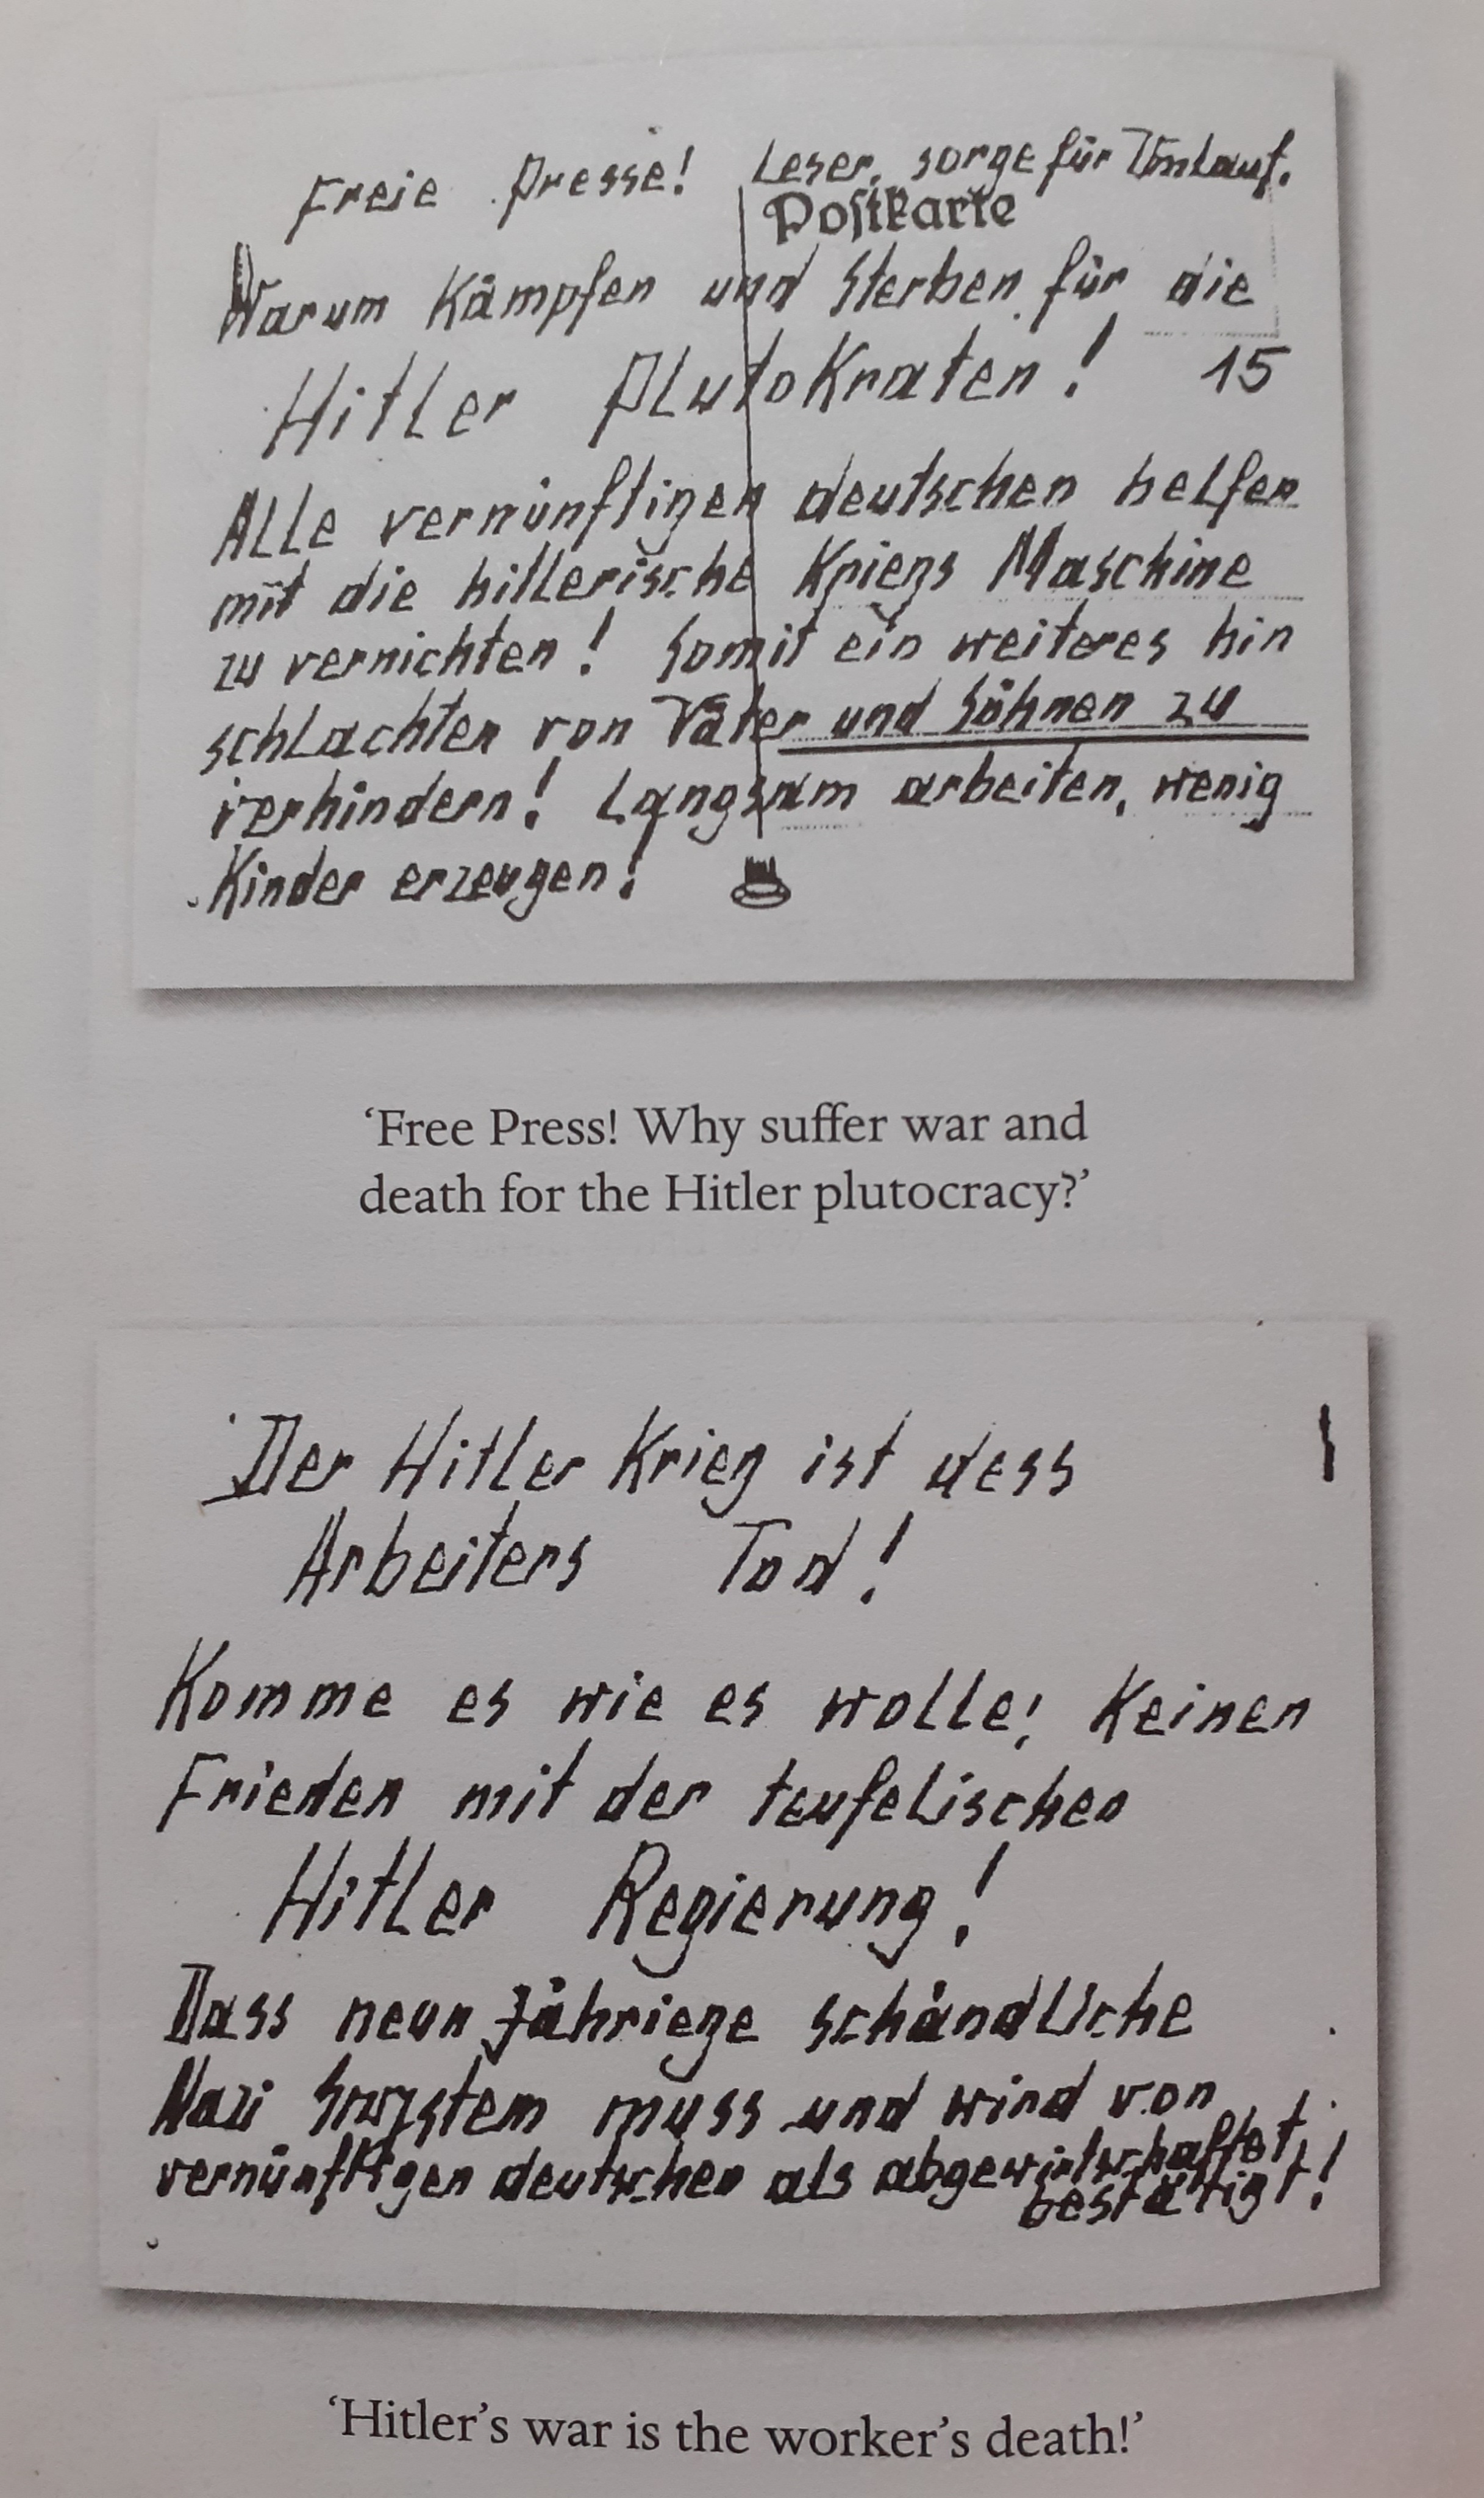 Freie Presse! Leser, sorge für Umlauf.
Postkarte
Warum Kämpfen und Sterben für die
Hitler Plutokraten! 15
Alle vernünftigen deutschen helfen
mit die hitlerische Kriegs Maschine
zu vernichten! Somit ein weiteres hin
schlachten von Väter und Söhnen zu
verhindern! Langsam arbeiten, wenig
Kinder erzeugen!
‘Free Press! Why suffer war and
death for the Hitler plutocracy?’
Der Hitler Krieg ist dess
Arbeiters Tod!
Komme es wie es wolle! Keinen
Frieden mit der teufelischen
Hitler Regierung!
Dass neun Jähriege schändliche
Nazi muss und wird von
vernünftigen deutschen als abgewirtschaftet
bestätigt!
‘Hitler’s war is the worker’s death!’